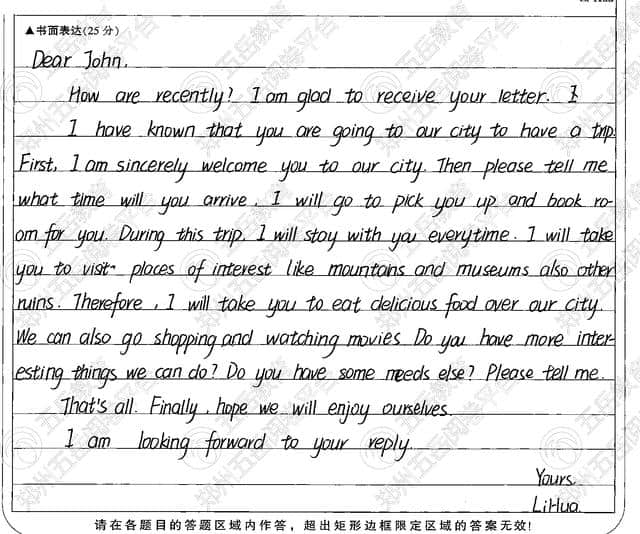 ▲书面表达(25分)
Dear John,
How are recently? I am glad to receive your letter. I
I have known that you are going to our city to have a trip.
First, I am sincerely welcome you to our city. Then please tell me
what time will you arrive. I will go to pick you up and book ro-
om for you. During this trip, I will stay with you everytime. I will take
you to visit places of interest like mountans and museums also other
ruins. Therefore, I will take you to eat delicious food over our city.
We can also go shopping and watching movies. Do you have more inter-
esting things we can do? Do you have some needs else? Please tell me.
That's all. Finally, hope we will enjoy ourselves.
I am looking forward to your reply.
Yours,
LiHua.
请在各题目的答题区域内作答，超出矩形边框限定区域的答案无效!
郑州五岳教育
五岳阅卷平台